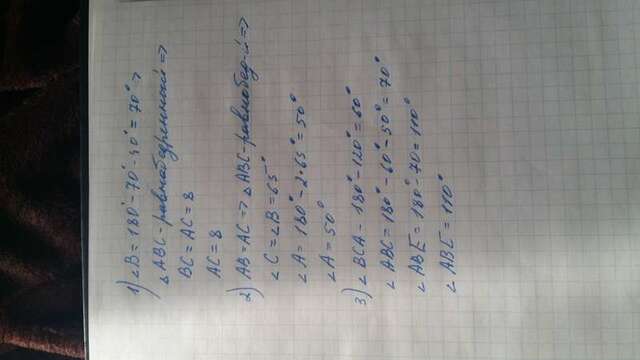 1) ∠B = 180° - 70° - 40° = 70° =>
△ABC - равнобедренный =>
BC = AC = 8
AC = 8
2) AB = AC => △ABC - равнобед-й =>
∠C = ∠B = 65°
∠A = 180° - 2·65° = 50°
∠A = 50°
3) ∠BCA - 180° - 120° = 60°
∠ABC = 180° - 60° - 50° = 70°
∠ABE = 180° - 70 = 110°
∠ABE = 110°